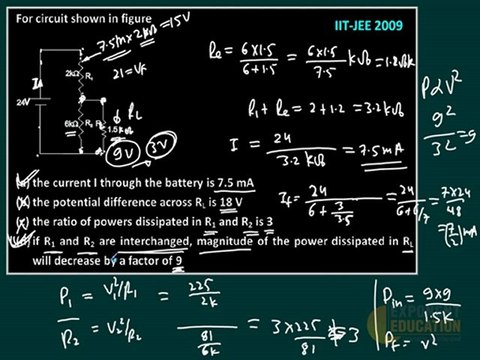 For circuit shown in figure
IIT-JEE 2009
7.5m × 2kΩ = 15V
2kΩ R₁
2I = VF
I
24V
6kΩ R₂
RL
1.5kΩ
9V 3V
Re = 6×1.5 / 6+1.5 = 6×1.5 / 7.5 kΩ = 1.2kΩ
R₁ + Re = 2+1.2 = 3.2kΩ
I = 24 / 3.2kΩ = 7.5mA
P α V²
9² / 3² = 9
If = 24 / 6 + 3/3.5 = 24 / 6+6/7 = 7×24 / 48
= (7/2) mA
the current I through the battery is 7.5 mA
the potential difference across RL is 18 V
the ratio of powers dissipated in R₁ and R₂ is 3
if R₁ and R₂ are interchanged, magnitude of the power dissipated in RL
will decrease by a factor of 9
P₁ = V₁²/R₁ = 225 / 2k
P₂ = V₂²/R₂ 81 / 6k = 3×225 / 81 ≠ 3
Pin = 9×9 / 1.5k
Pf = V²
EDUCATION